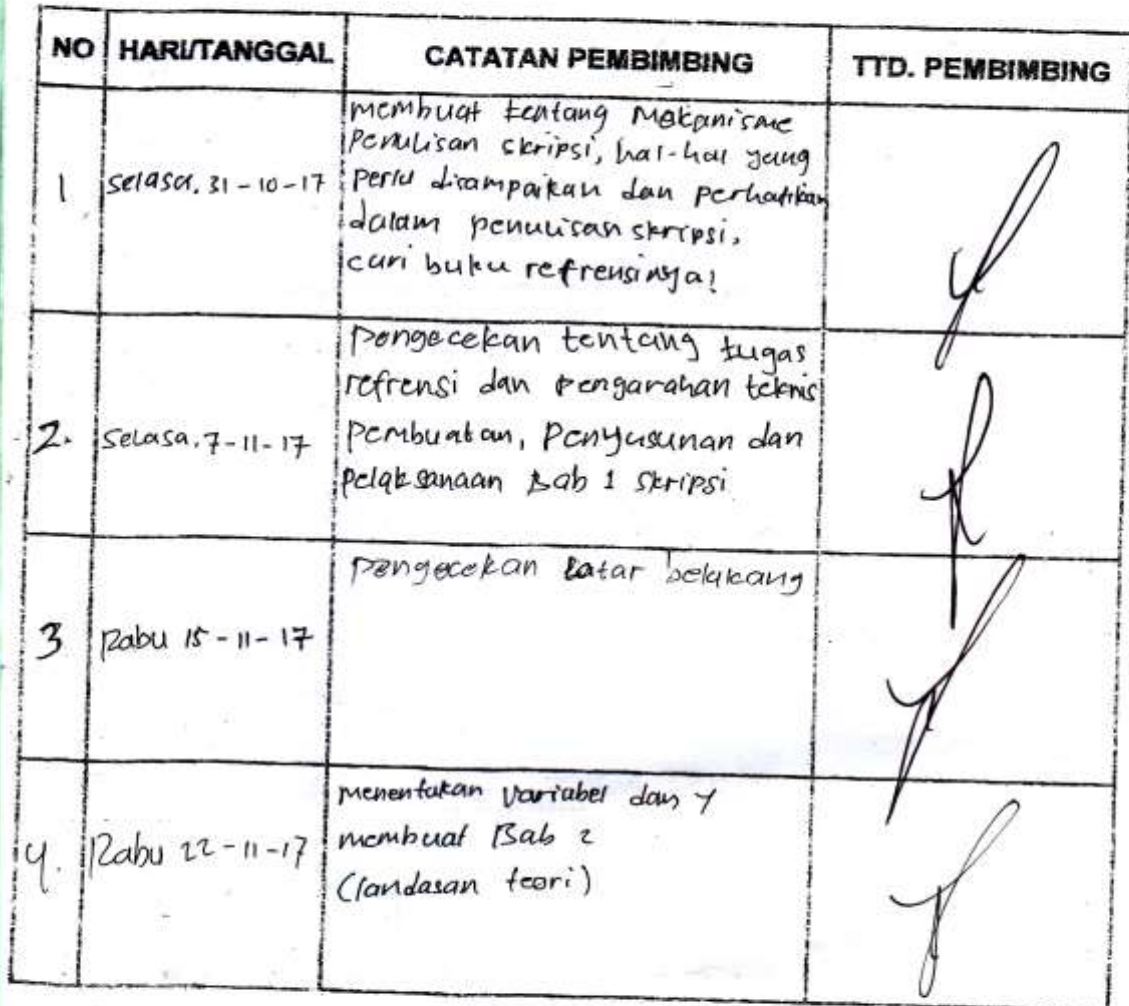 NO HARI/TANGGAL CATATAN PEMBIMBING TTD. PEMBIMBING
1 selasa, 31-10-17
membuat tentang Mekanisme
Penulisan skripsi, hal-hal yang
perlu disampaikan dan perhatikan
dalam penulisan skripsi,
cari buku refrensinya!
2. Selasa, 7-11-17
pengecekan tentang tugas
refrensi dan pengarahan teknis
Pembuatan, Penyusunan dan
pelaksanaan Bab 1 skripsi
3 Rabu 15-11-17
pengecekan Latar belakang
4. Rabu 22-11-17
menentukan Variabel dan y
membuat Bab 2
(landasan teori)